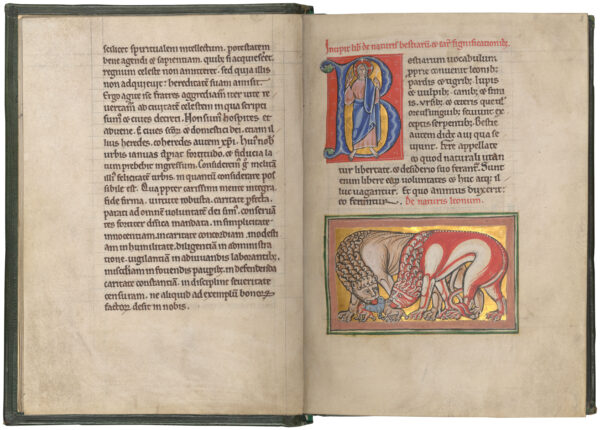 scilicet spiritualem intellectum. potestatem
bene agendi & sapientiam. quib; si acquiesceret
regnum celeste non amitteret. sed quia illis
non adquieuit: hereditatē suam amisit.
Ergo agite fratres aggrediamur iter ut re
uertam ad ciuitatē celestem in qua scripti
sum; ciues Non sum; hospites et
aduene. S; ciues & domestici dei. etiam il
lius heredes. coheredes autem xp̄i. Hui; nob̄
urbis ianuas apiat fortitudo. & fiducia la
tum prebebit ingressum.
felicitatē urbis. in quantū considerare pos
sibile est. Qua ppter carissimi mente integra
fide firma. uirtute robusta. caritate pfecta.
parati ad omnē uoluntatē dei sim;. conserua
tes fortiter mandata. in simplicitate
innocentiam. in caritate concordiam. modesti
am in humilitate. diligentiā in administra
tione. uigilantiā in adiuuandis laborantib;
in fouendis paupib; in defendenda
caritate constantiā. in discipline seueritate
censuram. ne aliquid ad exemplū bonoꝝ
factoꝝ desit in nobis.
Incipit lib̄ de naturis bestiarū. & eaꝝ significationib;
Bestiarum uocabulum
pprie conuenit leonib;
pardis & tigrib; lupis
& uulpib; canib; & simi
is. ursib; & ceteris que uel
ore uel unguib; seuiunt ex
ceptis serpentib; Bestie
autem dicte a ui qua se
uiunt. Fere appellate
eo quod naturali utan
tur libertate. & desiderio suo ferant̄. Sunt
enim libere eaꝝ uoluntates & huc atq; il
luc uagantur. Et quo animus duxerit:
eo feruntur. De naturis leonum.